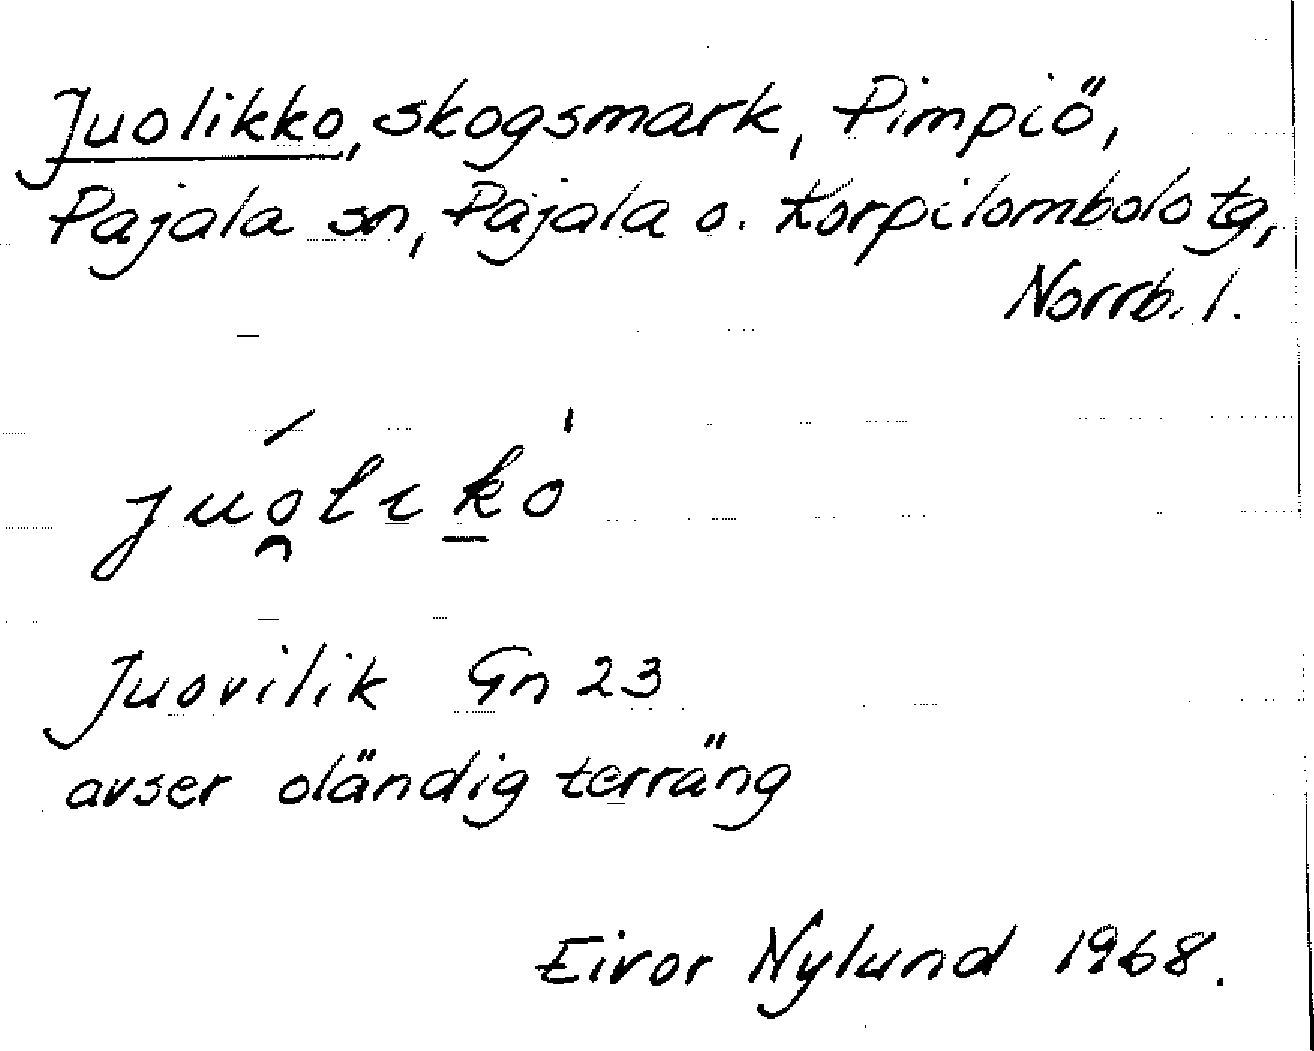 Juolikko, skogsmark, Pimpiö,
Pajala sn, Pajala o. Korpilombolo tg,
Norrb. l.
juo̯likò
Juovilik Gn 23
avser oländig terräng
Eivor Nylund 1968.